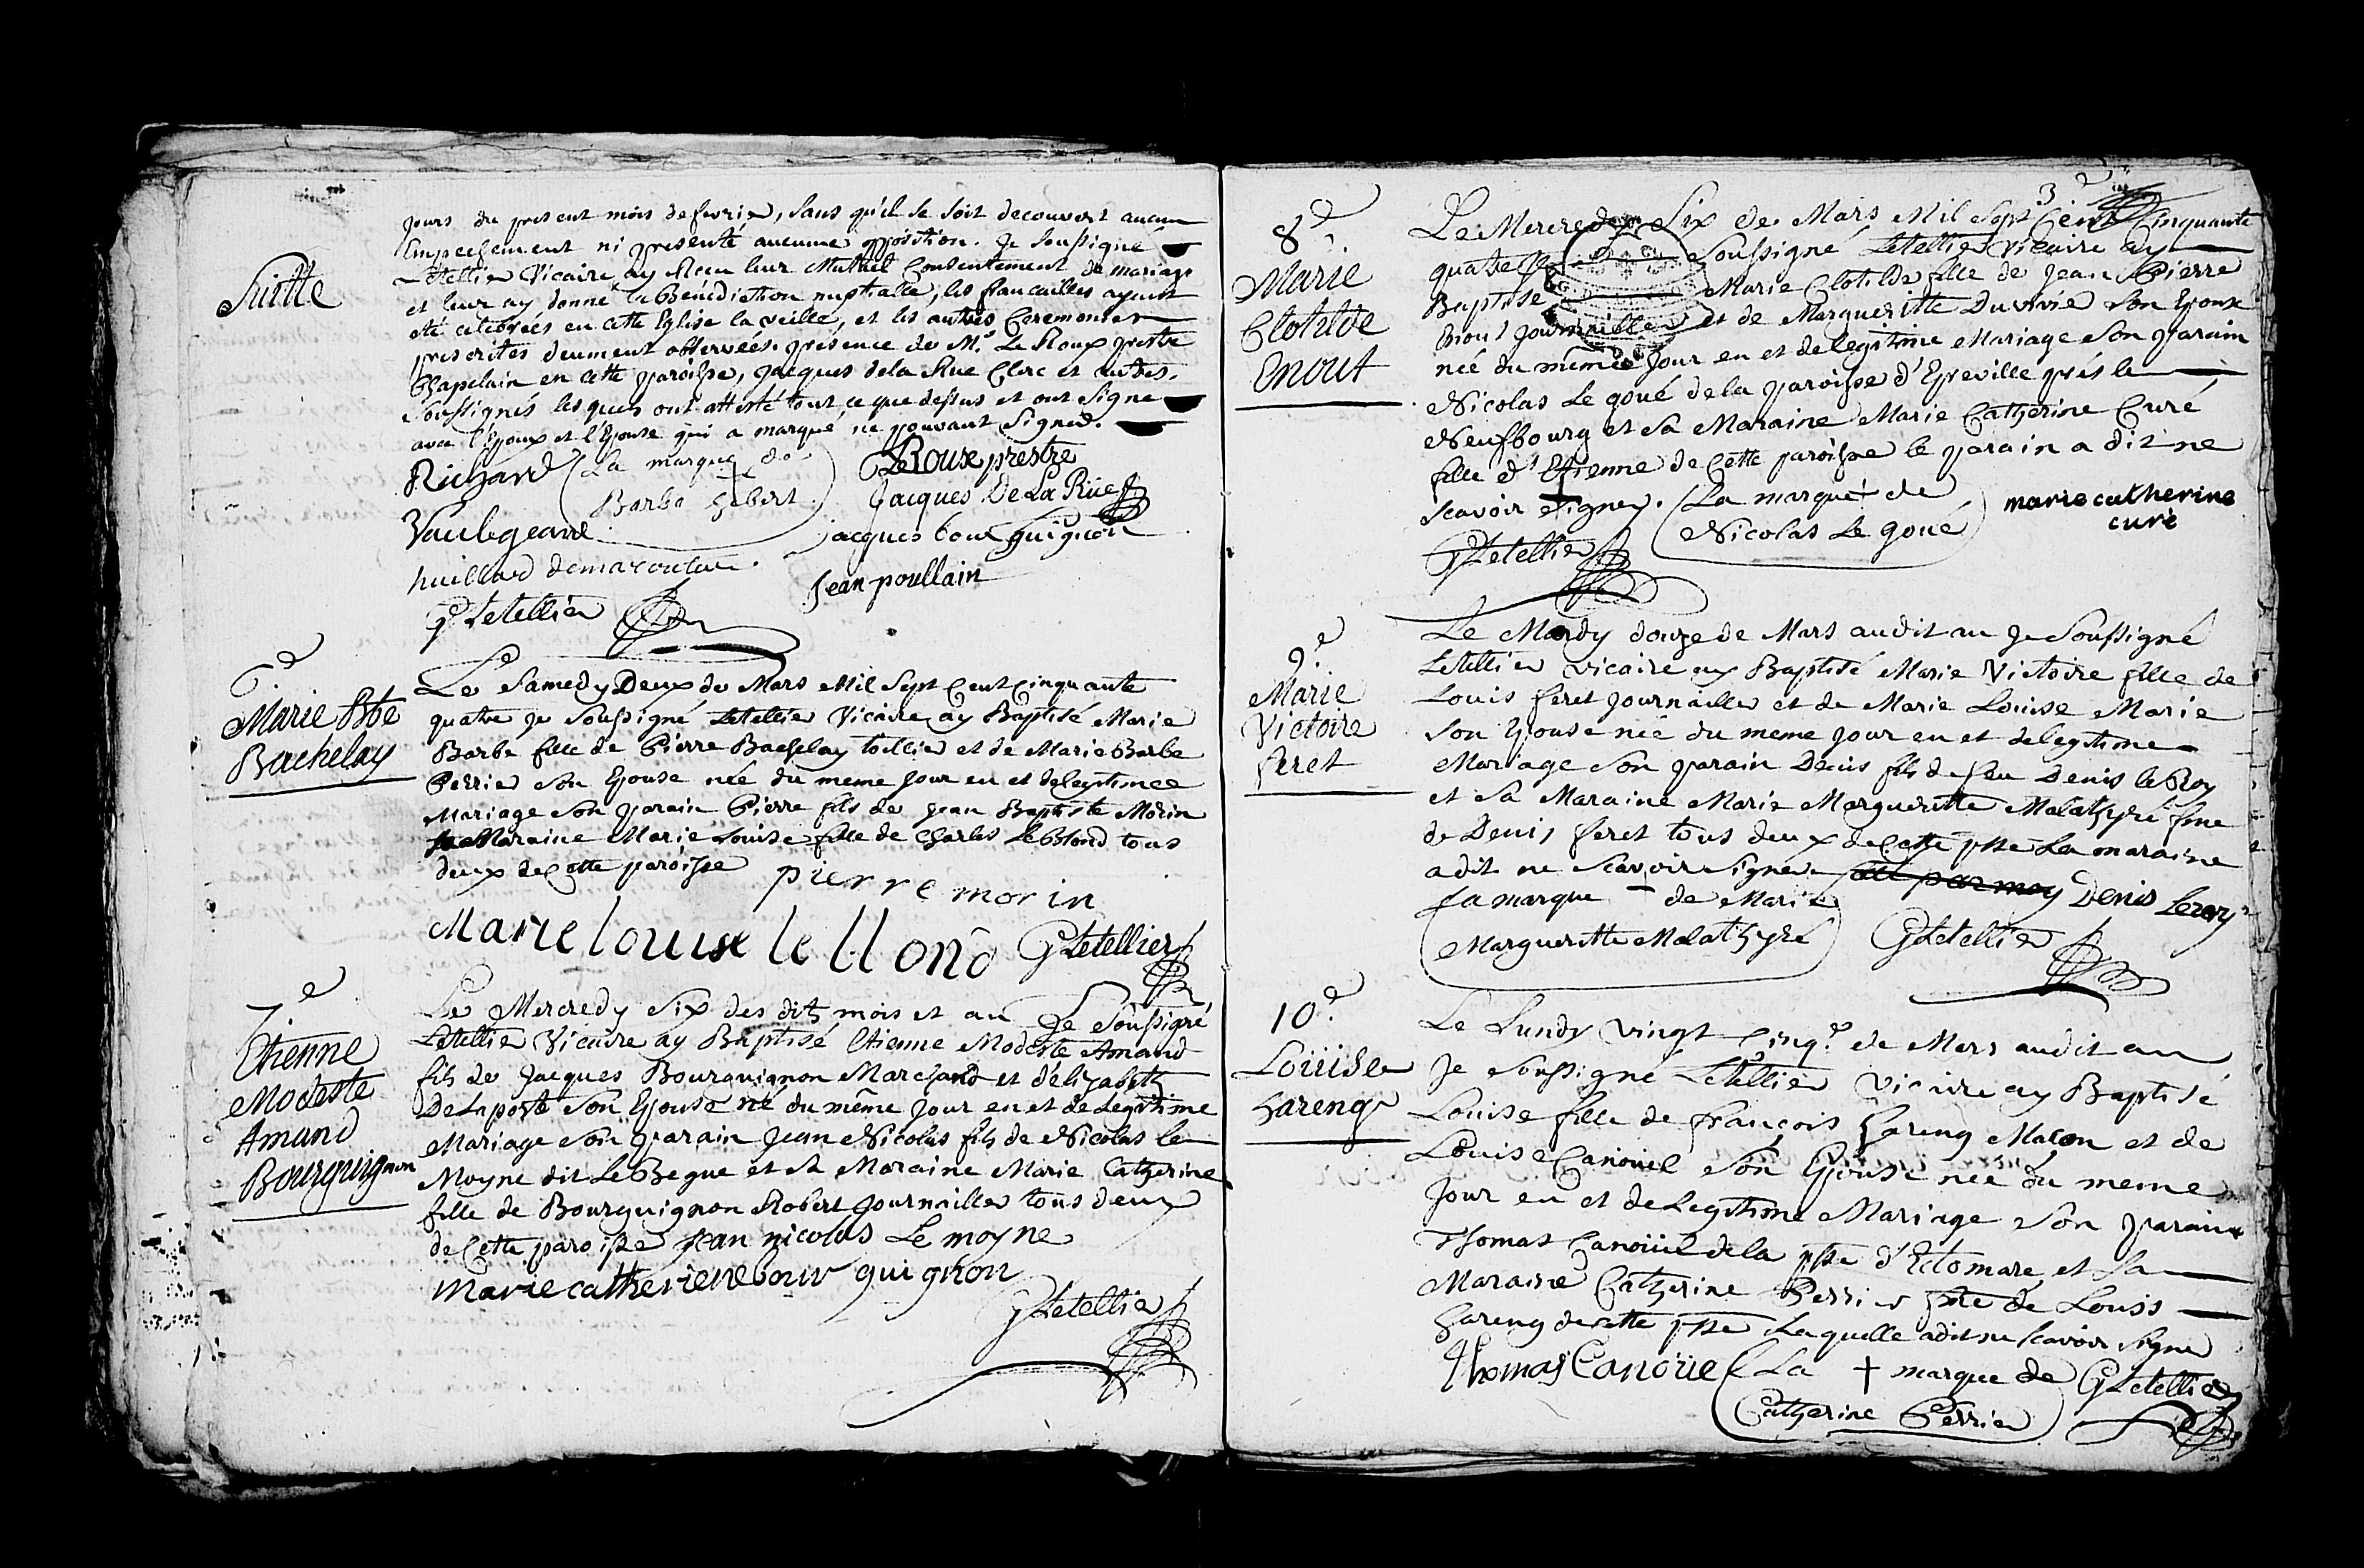 Suitte
jours du present mois de fevrier, sans qu'il se soit decouvert aucun
Empechement ni presenté aucune opposition. Je soussigné
Letellier Vicaire ay Recu leur Mutuel Consentement de mariage
et leur ay donné la Bénédiction nuptialle, les fiancailles ayant
été célébrées en cette Eglise la veille, et les autres Ceremonies
prescrites deument observées. presence de Mr. Le Roux prestre
Chapelain en cette paroisse, jacques dela Rue Clerc et autres.
Soussignés lesquels ont attesté tout ce que dessus et ont signé
avec l'Epoux et l'Epouse qui a marqué ne pouvant Signer.
Richard
La marque de
Barbe hebert
LeRoux prestre
Jacques De La Rüe
Vaulegeard
jacques bourguignon
huillard
jean poullain
G Letellier
6e
Marie Bbe
Bachelay
Le Samedy Deux de Mars Mil Sept Cent Cinquante
quatre je Soussigné Letellier Vicaire ay Baptisé Marie
Barbe fille de Pierre Bachelay toillier et de Marie Barbe
Perrier son Epouse née du meme jour en et de legitimee
Mariage son parain Pierre fils de jean Baptiste Morin
sa Maraine Marie Louise fille de Charles Le Blond tous
deux de Cette paroisse
pierre morin
Marie louise le llond
G Letellier
7e
Etienne
Modeste
Amand
Bourguignon
Le Mercredy Six des dits mois et an Je Soussigné
Letellier Vicaire ay Baptisé Etienne Modeste Amand
fils de Jacques Bourguignon Marchand et d'élizabeth
De La porte son Epouse né du même jour en et de Legitime
Mariage son parain jean Nicolas fils de Nicolas le
Moyne dit Le Begue et sa Maraine Marie Catherine
fille de Bourguignon Robert journaillier tous deux
de Cette paroisse jean nicolas Le moyne
Marie catherienebour guignon
G Letellier
3e
8e.
Marie
Clotilde
Enout
Le Mercredy Six de Mars Mil Sept Cent Cinquante
quatre Je Soussigné Letellier Vicaire ay
Baptisé Marie Clotilde fille de Jean Pierre
Enout journaillier et de Margueritte Duvivié son Epouse
née du même jour en et de legitime Mariage son parain
Nicolas Le goué de la paroisse d'Epreville prés le
Neufbourg et sa Maraine Marie Catherine Curé
fille d'Etienne de Cette paroisse le parain a dit ne
scavoir signer.
La marque de
Nicolas Le goué
marie catherine
curé
G Letellier
9e
Marie
Victoire
feret
Le Mardy douze de Mars audit an je Soussigné
Letellier vicaire ay Baptisé Marie Victoire fille de
Louis feret journaillier et de Marie Louise Marie
Son Epouse née du meme jour en et de legitime
Mariage Son parain Denis fils de feu Denis le Roy
et Sa Maraine Marie Margueritte Malathyré fme
de Denis feret tous deux de Cette psse La maraine
a dit ne Scavoir Signer fait par moy Denis Leroy
La marque de Marie
Margueritte Malathyré
G Letellier
10e.
Loüise
hareng
Le Lundy vingt Cinqe. de Mars audit an
Je Soussigné Letellier Vicaire ay Baptisé
Louise fille de françois hareng Macon et de
Louise Canoüel Son Epouse née du meme
jour en et de Legitime Mariage son parain
Thomas Canoüiel de la psse d'Ectomare, et La
Maraine Catherine Perrier fme de Louis
hareng de cette psse Laquelle a dit ne scavoir signer
Thomas Canoüel
La marque de
Catherine Perrier
G Letellier